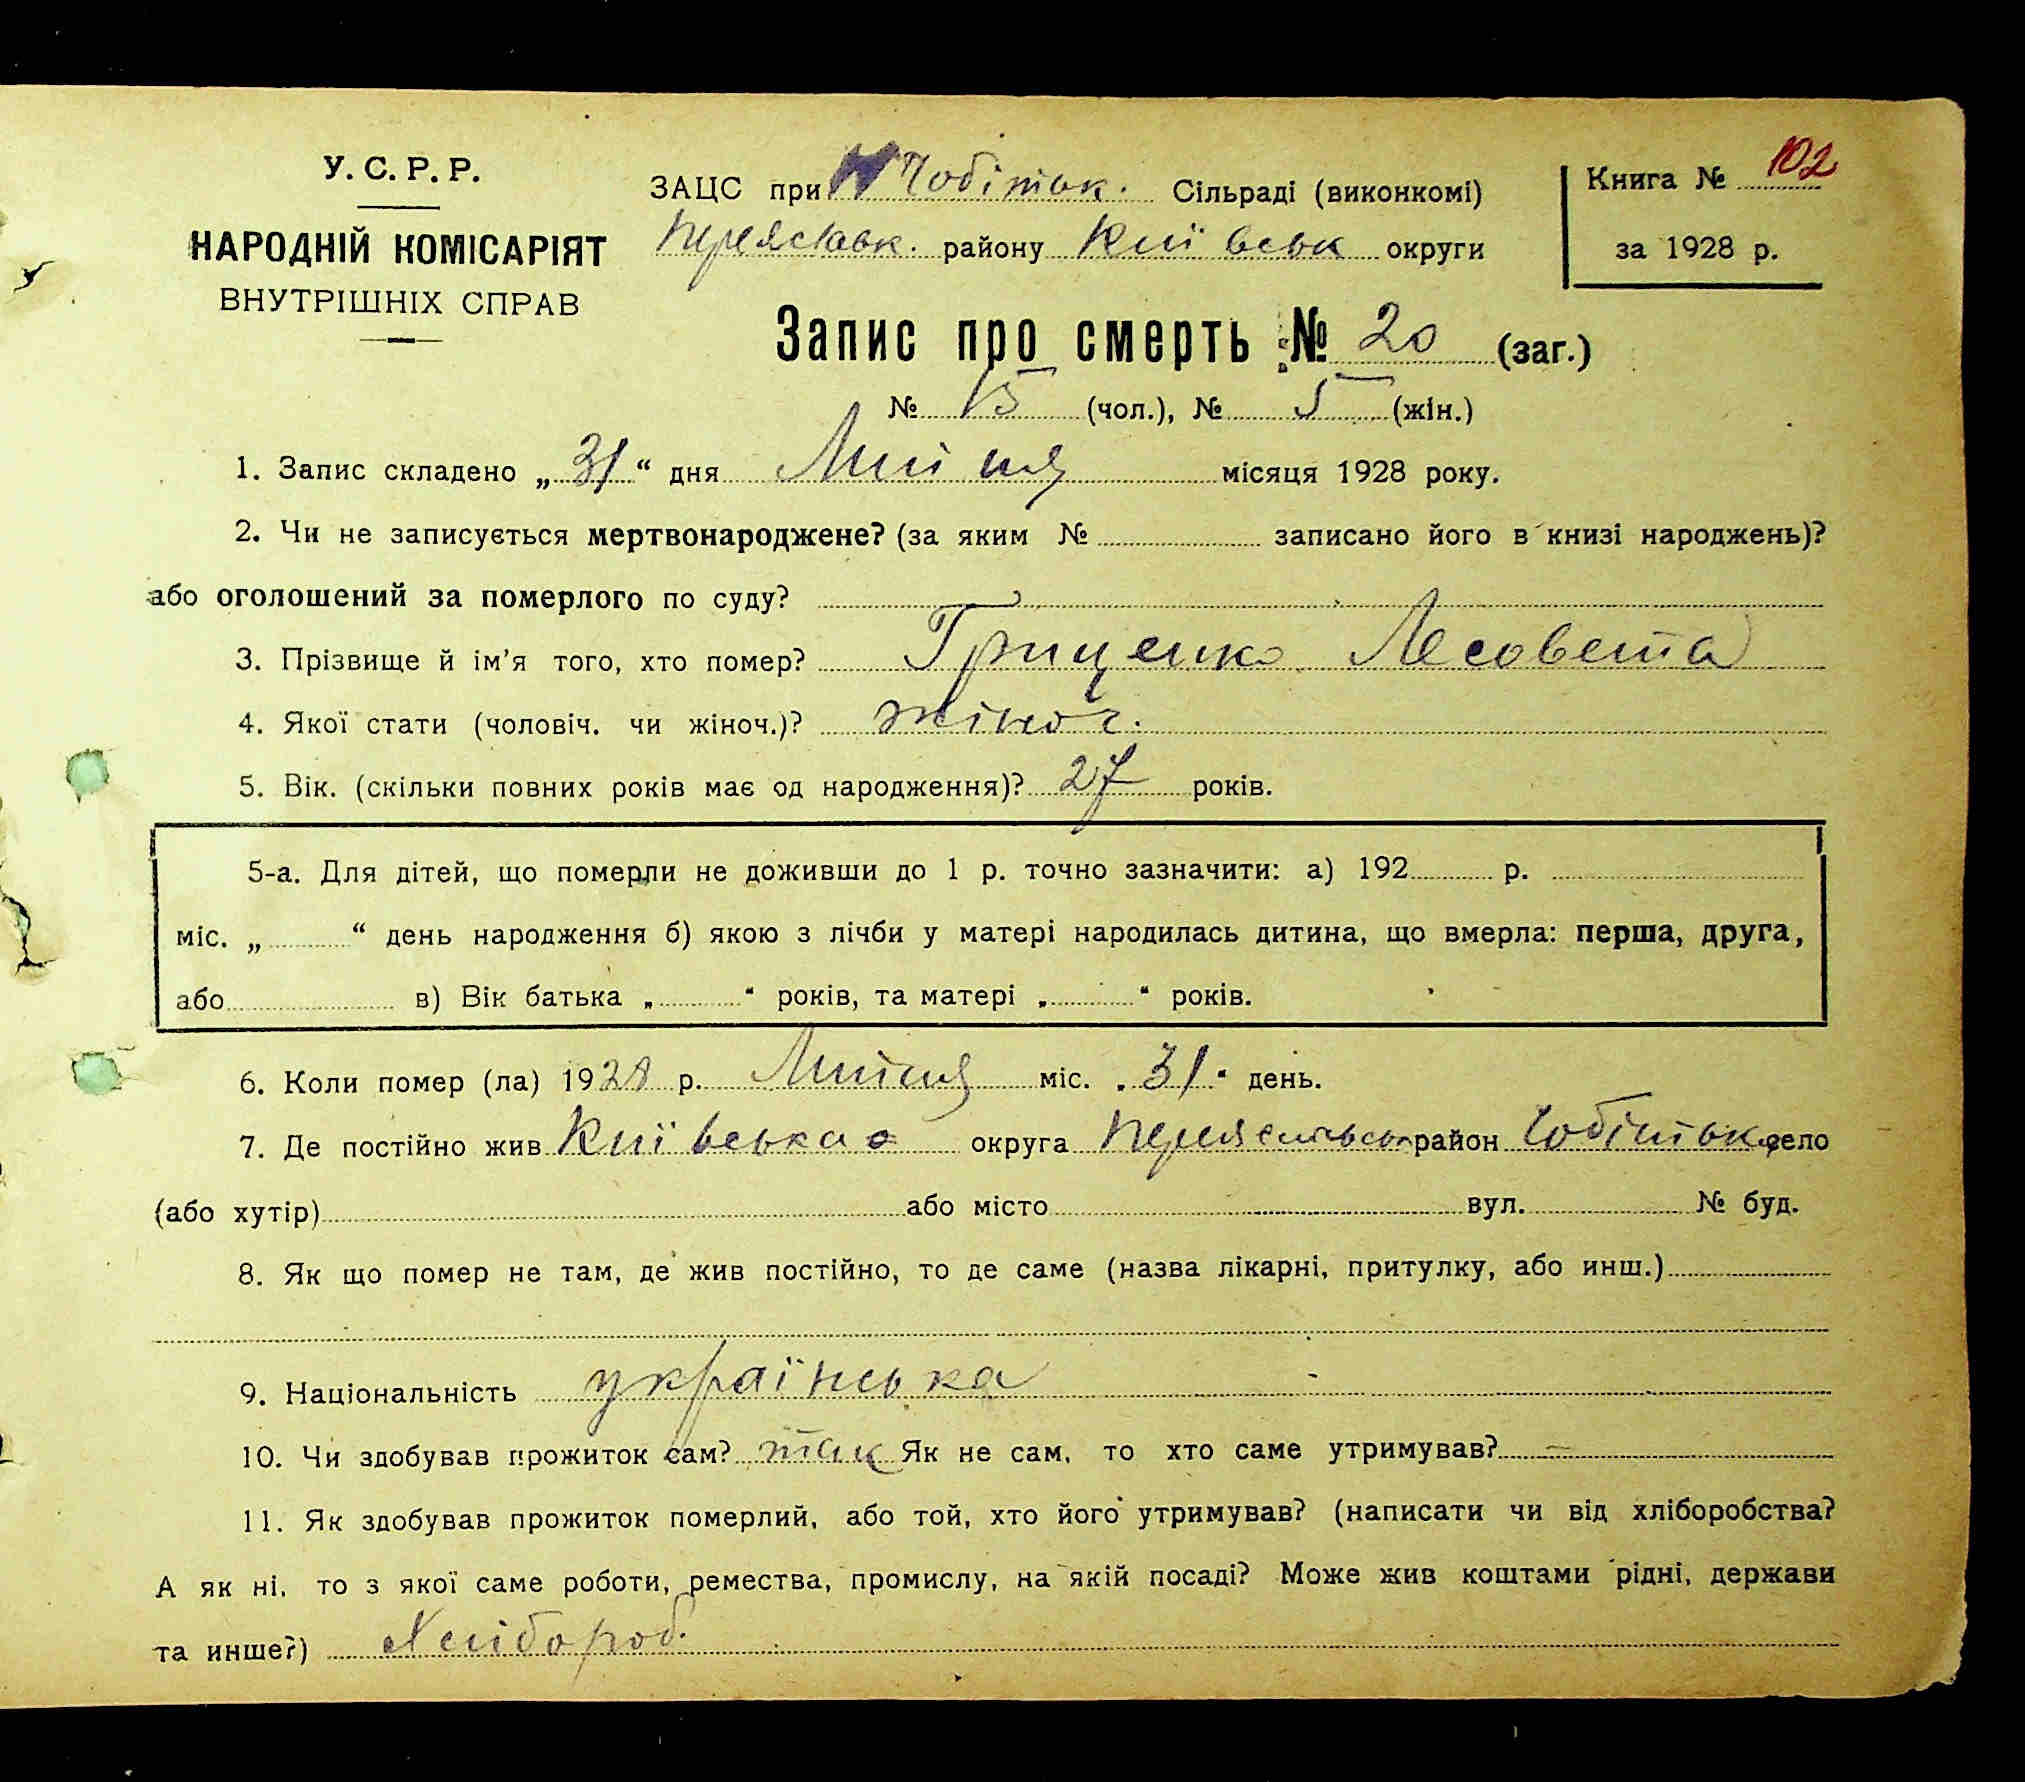 У. С. Р. Р.
НАРОДНІЙ КОМІСАРІЯТ
ВНУТРІШНІХ СПРАВ
ЗАЦС при Чобітьк. Сільраді (виконкомі)
Переяславськ. району Київськ округи
Книга № 102
за 1928 р.
Запис про смерть № 20 (заг.)
№ 15 (чол.), № 5 (жін.)
1. Запис складено „31“ дня Липня місяця 1928 року.
2. Чи не записується мертвонароджене? (за яким № записано його в книзі народжень)?
або оголошений за померлого по суду?
3. Прізвище й ім’я того, хто помер? Гриценко Лесовета
4. Якої стати (чоловіч. чи жіноч.)? жіноч.
5. Вік. (скільки повних років має од народження)? 27 років.
5-а. Для дітей, що померли не доживши до 1 р. точно зазначити: а) 192 р.
міс. „ “ день народження б) якою з лічби у матері народилась дитина, що вмерла: перша, друга,
або в) Вік батька „ “ років, та матері „ “ років.
6. Коли помер (ла) 1928 р. Липня міс. „31“ день.
7. Де постійно жив Київська округа район Чобітьк село
(або хутір) або місто вул. № буд.
8. Як що помер не там, де жив постійно, то де саме (назва лікарні, притулку, або инш.)
9. Національність українська
10. Чи здобував прожиток сам? так Як не сам, то хто саме утримував? —
11. Як здобував прожиток померлий, або той, хто його утримував? (написати чи від хліборобства?
А як ні, то з якої саме роботи, ремества, промислу, на якій посаді? Може жив коштами рідні, держави
та инше?) Хлібороб.